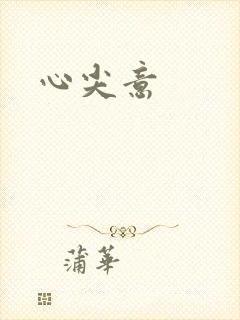 心尖意
蒲華